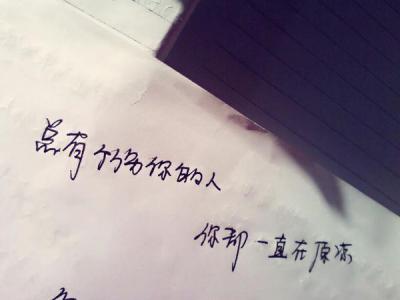 总有个伤你的人
你却一直在原谅